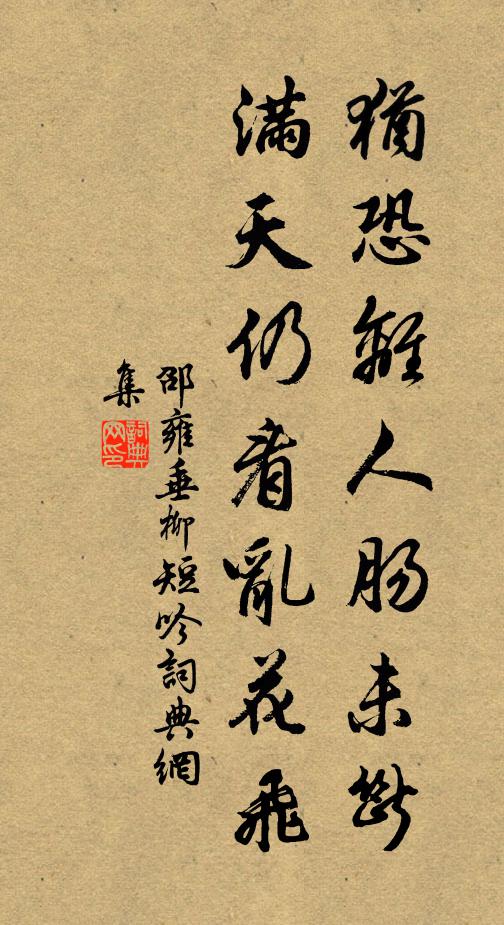 猶恐離人腸未斷
滿天仍看亂花飛
邵雍垂柳短吟詞典網
集
詞典
网印